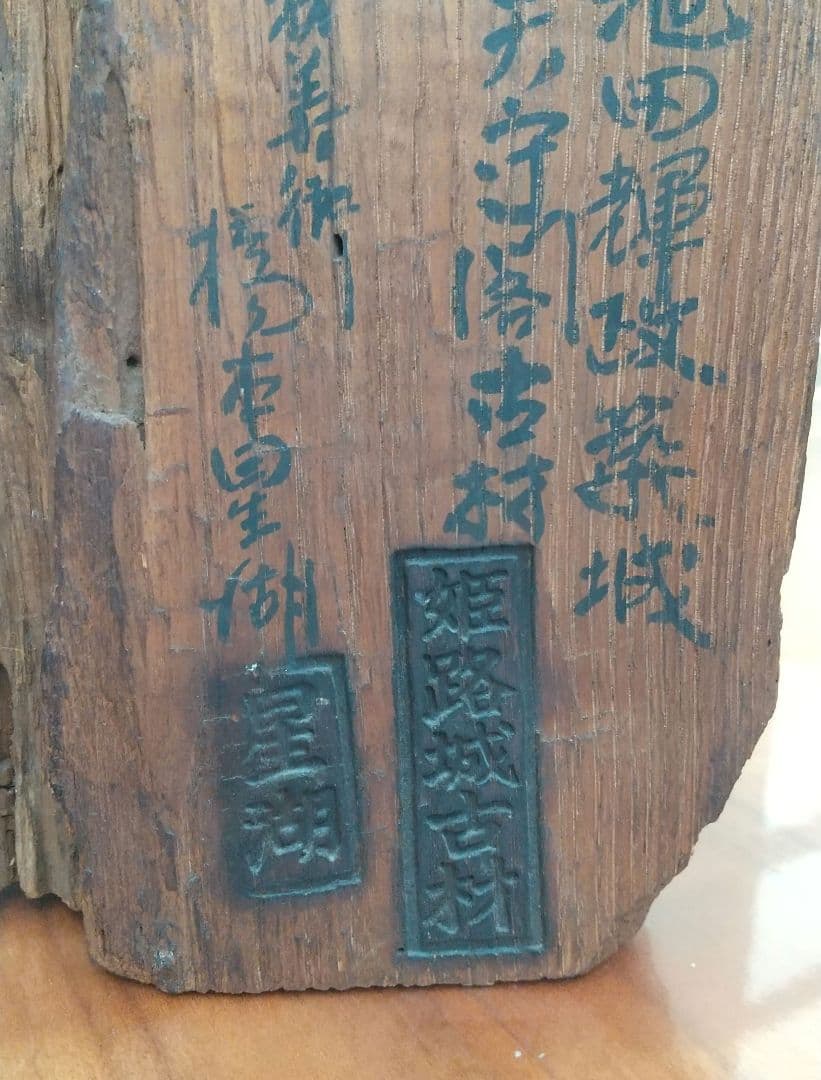 池田輝政築城
天守閣古材
姫路城古材
善御
橋本星湖
星湖